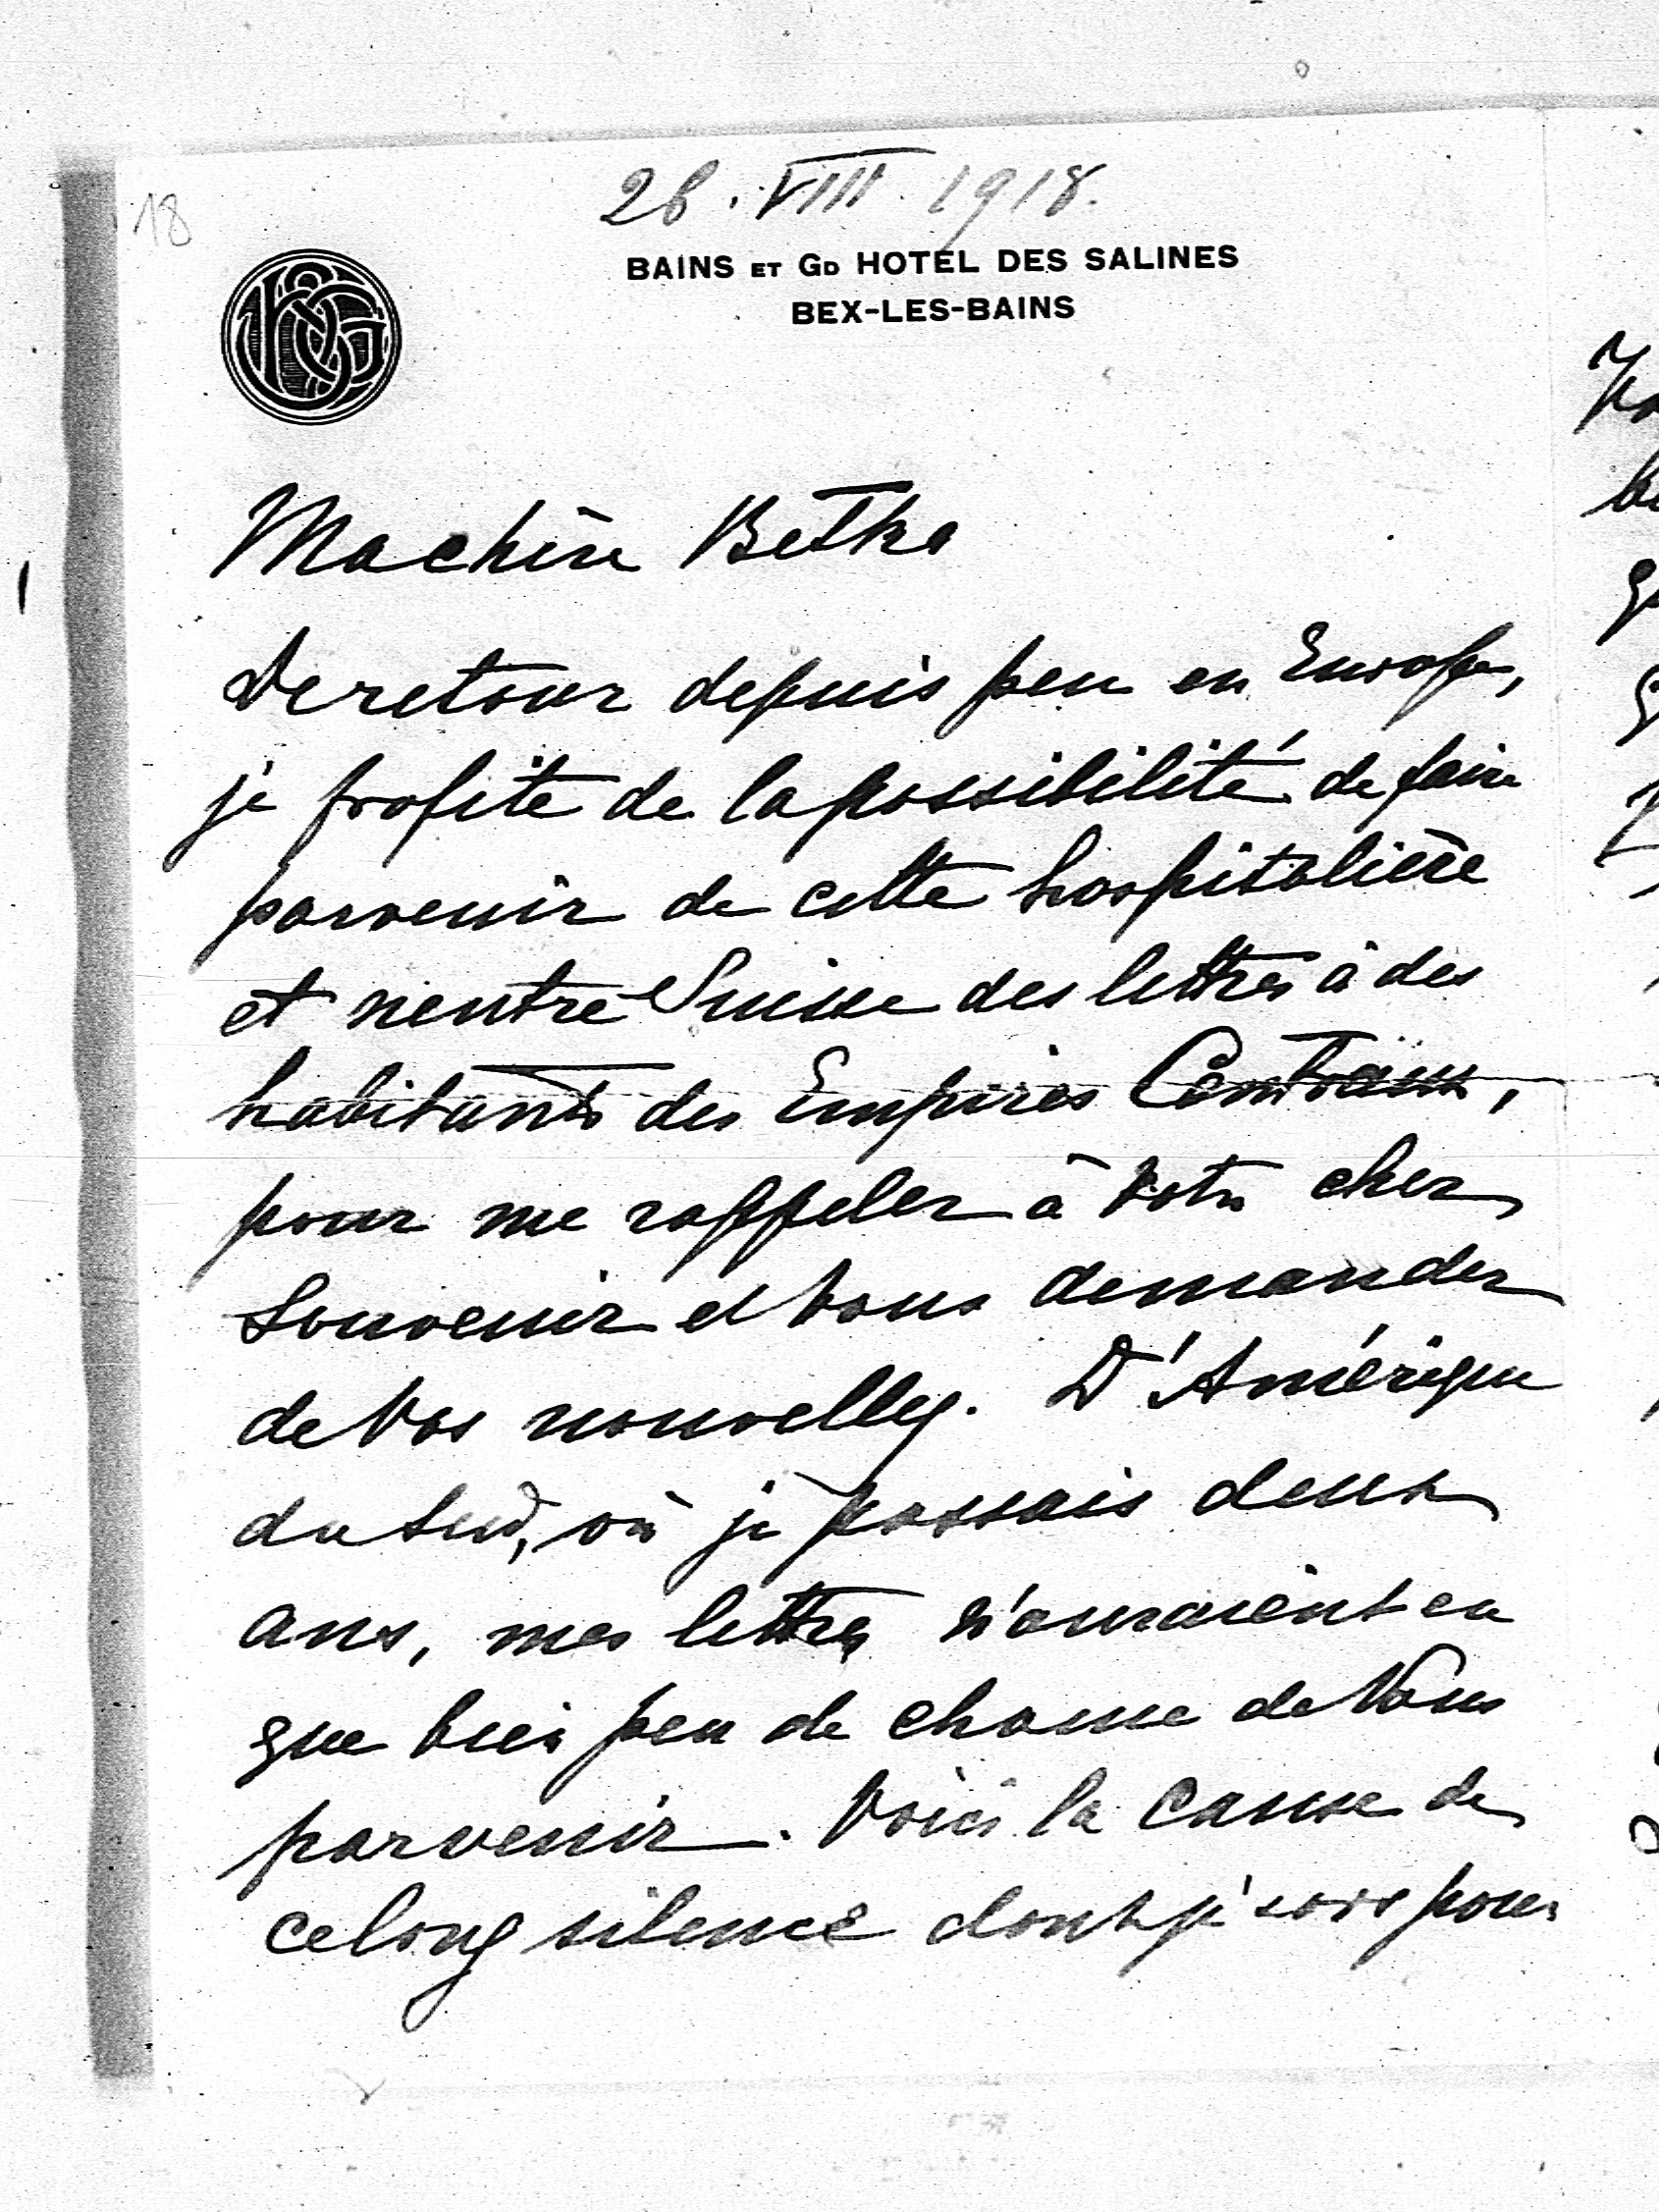 18
26. VIII. 1918.
BAINS ET GD HOTEL DES SALINES
BEX-LES-BAINS
Ma chère Betka
De retour depuis peu en Europe,
je profite de la possibilité de faire
parvenir de cette hospitalière
et neutre Suisse des lettres à des
habitants des Empires Centraux,
pour me rappeler à Votre cher
Souvenir et Vous demander
de Vos nouvelles. D'Amérique
du Sud, où je passais deux
ans, mes lettres n'auraient eu
que bien peu de chance de Vous
parvenir. Voici la cause de
ce long silence dont je sors pour